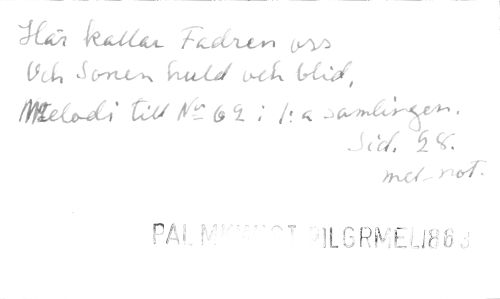 Här kallar Fadren oss
Och Sonen huld och blid,
Melodi till No 62 i 1:a samlingen.
Sid. 28.
mel-not.
PALMKVIST PILGRMEL1863